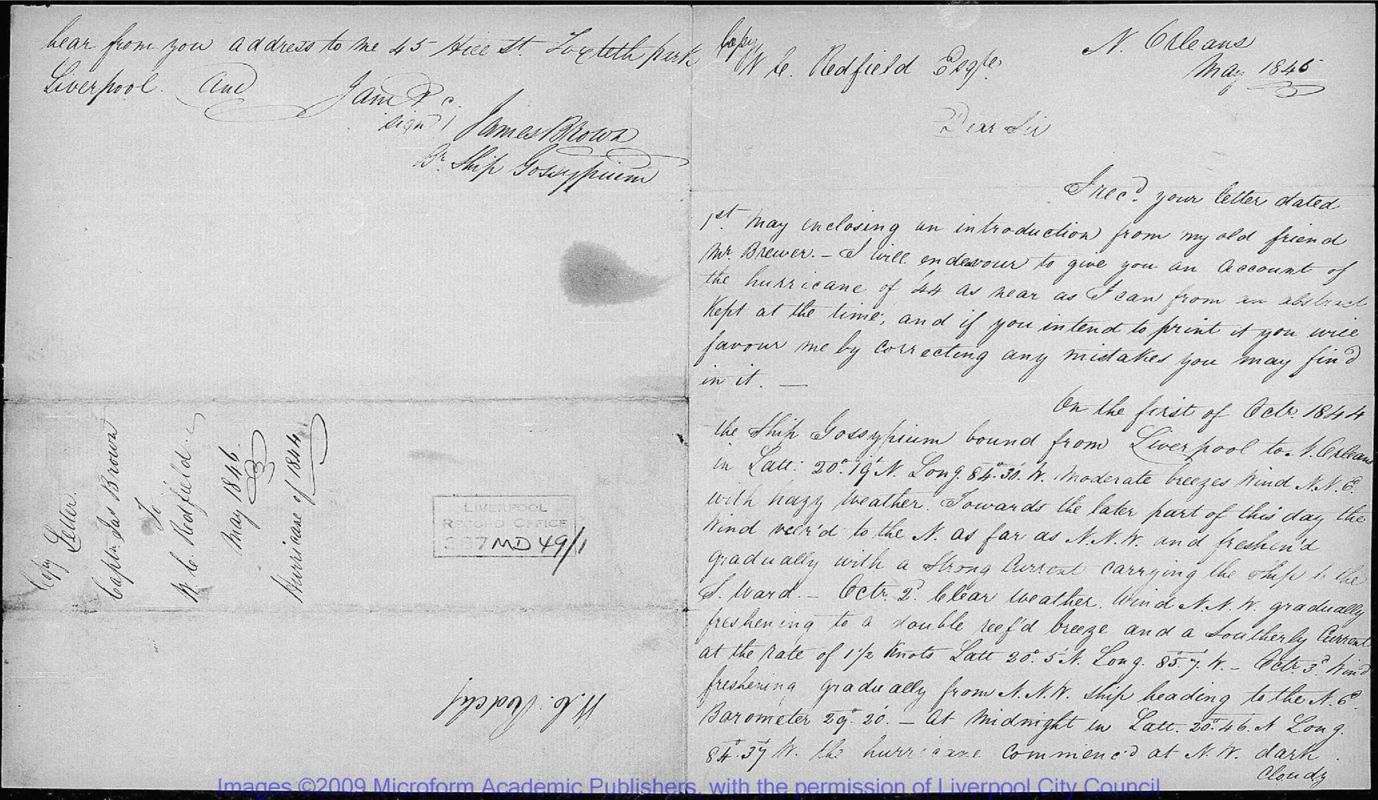 hear from you address to me 45 Hill St. Toxteth park
Liverpool. and
I am &c.
sign'd James Brown
Br. Ship Gossypium
Copy Letter
Captn Jas Brown
To
W C Redfield
May 1846
Hurricane of 1844
LIVERPOOL
RECORD OFFICE
387 MD 49/1
W. C.
Copy
N. Orleans
W C. Redfield Esqre.
May 1846
Dear Sir
I recd. your letter dated
1st. May enclosing an introduction from my old friend
Mr. Brewer. – I will endevour to give you an account of
the hurricane of 44 as near as I can from an abstract
Kept at the time, and if you intend to print it you will
favour me by correcting any mistakes you may find
in it. —
On the first of Octr. 1844
the Ship Gossypium bound from Liverpool to N. Orleans
in Latt: 20°.19' N. Long. 84°.30' W. moderate breezes Wind N.N.E.
with hazy weather. Towards the later part of this day the
Wind veer'd to the N. as far as N.N.W. and freshen'd
gradually with a Strong Current carrying the ship to the
S. Ward. – Octr. 2d. Clear weather. Wind N.N.W. gradually
freshening to a double reef'd breeze and a Southerly Current
at the rate of 1 1/2 Knots Latt 20°. 5' N. Long. 85°.7' W. – Octr. 3d. Wind
freshening gradually from N.N.W. ship heading to the N.Ed.
Barometer 29°.20'. – At Midnight in Latt. 20°.46' N Long.
84°.37' W. the hurricane commenc'd at N.W. dark
Cloudy
Images ©2009 Microform Academic Publishers, with the permission of Liverpool City Council